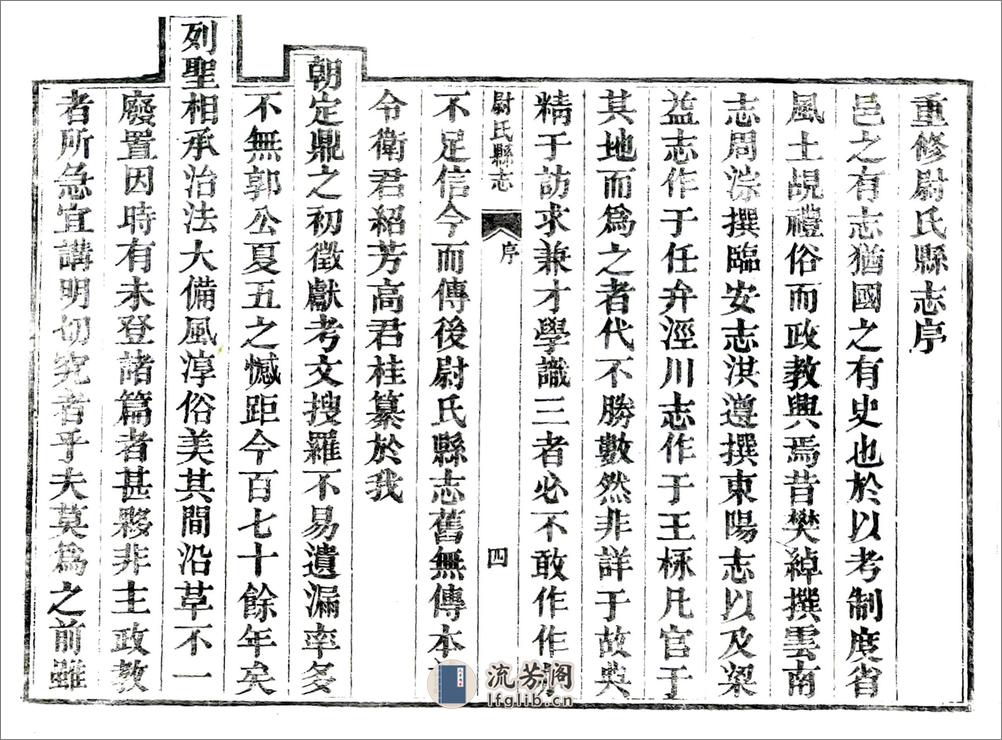 重修尉氏縣志序
邑之有志猶國之有史也於以考制度省
風土覘禮俗而政教興焉昔樊綽撰雲南
志周淙撰臨安志洪遵撰東陽志以及梁
益志作于任弁涇川志作于王栐凡官于
其地而為之者代不勝數然非詳于故典
精于訪求兼才學識三者必不敢作作
尉氏縣志 序 四
不足信今而傳後尉氏縣志舊無傳本
令衛君紹芳高君桂纂於我
朝定鼎之初徵獻考文搜羅不易遺漏率多
不無郭公夏五之憾距今百七十餘年矣
列聖相承治法大備風淳俗美其間沿革不一
廢置因時有未登諸篇者甚夥非主政教
者所急宜講明切究者乎夫莫為之前雖
流芳阁
lfglib.cn